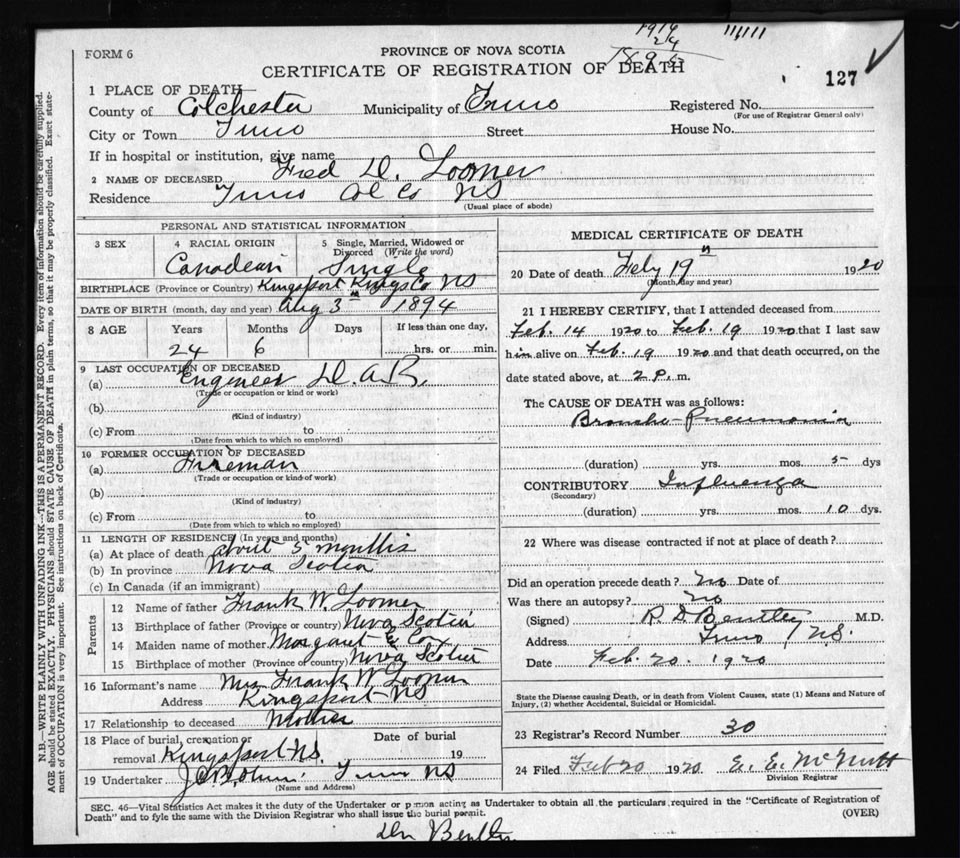 1919
24
1895
FORM 6
PROVINCE OF NOVA SCOTIA
CERTIFICATE OF REGISTRATION OF DEATH
127
1 PLACE OF DEATH—
County of Colchester Municipality of Truro Registered No.
(For use of Registrar General only)
City or Town Truro Street House No.
If in hospital or institution, give name
2 NAME OF DECEASED Fred D. Loomer
Residence Truro Col Co NS
(Usual place of abode)
PERSONAL AND STATISTICAL INFORMATION
3 SEX 4 RACIAL ORIGIN 5 Single, Married, Widowed or Divorced (Write the word)
Canadean Single
BIRTHPLACE (Province or Country) Kingsport Kings Co NS
DATE OF BIRTH (month, day and year) Aug 3 1894
8 AGE Years Months Days If less than one day,
24 6 hrs. or min.
9 LAST OCCUPATION OF DECEASED
(a) Engineer D.A.R.
(Trade or occupation or kind or work)
(b)
(Kind of industry)
(c) From to
(Date from which to which so employed)
10 FORMER OCCUPATION OF DECEASED
(a) Fireman
(Trade or occupation or kind of work)
(b)
(Kind of industry)
(c) From to
(Date from which to which so employed)
11 LENGTH OF RESIDENCE (In years and months)
(a) At place of death about 5 months
(b) In province Nova Scotia
(c) In Canada (if an immigrant)
Parents
12 Name of father Frank W Loomer
13 Birthplace of father (Province or country) Nova Scotia
14 Maiden name of mother Margaret E Cox
15 Birthplace of mother (Province or country) Nova Scotia
16 Informant's name Mrs Frank W Loomer
Address Kingsport NS
17 Relationship to deceased Mother
18 Place of burial, cremation or removal Kingsport NS. Date of burial 19
19 Undertaker Truro NS
(Name and Address)
MEDICAL CERTIFICATE OF DEATH
20 Date of death Feby 19 1920
(Month, day and year)
21 I HEREBY CERTIFY, that I attended deceased from
Feb. 14 1920 to Feb. 19 1920 that I last saw
him alive on Feb. 19 1920 and that death occurred, on the
date stated above, at 2 P. m.
The CAUSE OF DEATH was as follows:
Broncho-Pneumonia
(duration) yrs. mos. 5 dys
CONTRIBUTORY Influenza
(Secondary)
(duration) yrs. mos. 10 dys.
22 Where was disease contracted if not at place of death?
Did an operation precede death? no Date of
Was there an autopsy? no
(Signed) R. D. Bentley M.D.
Address Truro NS.
Date Feb. 20. 1920
State the Disease causing Death, or in death from Violent Causes, state (1) Means and Nature of
Injury, (2) whether Accidental, Suicidal or Homicidal.
23 Registrar's Record Number 30
24 Filed Feb 20 1920 E. E. McNutt
Division Registrar
SEC. 46—Vital Statistics Act makes it the duty of the Undertaker or person acting as Undertaker to obtain all the particulars required in the "Certificate of Registration of
Death" and to fyle the same with the Division Registrar who shall issue the burial permit.
(OVER)
Dr Bentley
N.B.—WRITE PLAINLY WITH UNFADING INK—THIS IS A PERMANENT RECORD. Every item of information should be carefully supplied.
AGE should be stated EXACTLY. PHYSICIANS should STATE CAUSE OF DEATH in plain terms, so that it may be properly classified. Exact state-
ment of OCCUPATION is very important. See instructions on back of Certificate.